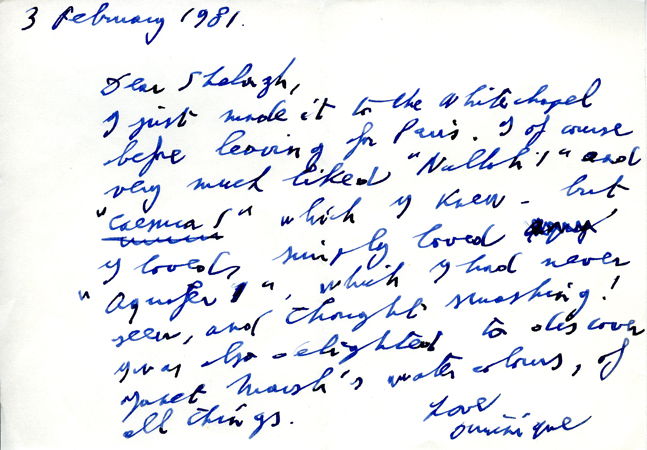 3 February 1981.
Dear Shelagh,
I just made it to the Whitechapel
before leaving for Paris. I of course
very much liked "Nulloh 1" and
"Caemca 1" which I knew - but
I loved, simply loved
"Aquifer 1", which I had never
seen, and thought smashing!
I was also delighted to discover
Janet Marsh's water colours, of
all things.
Love
Dominique